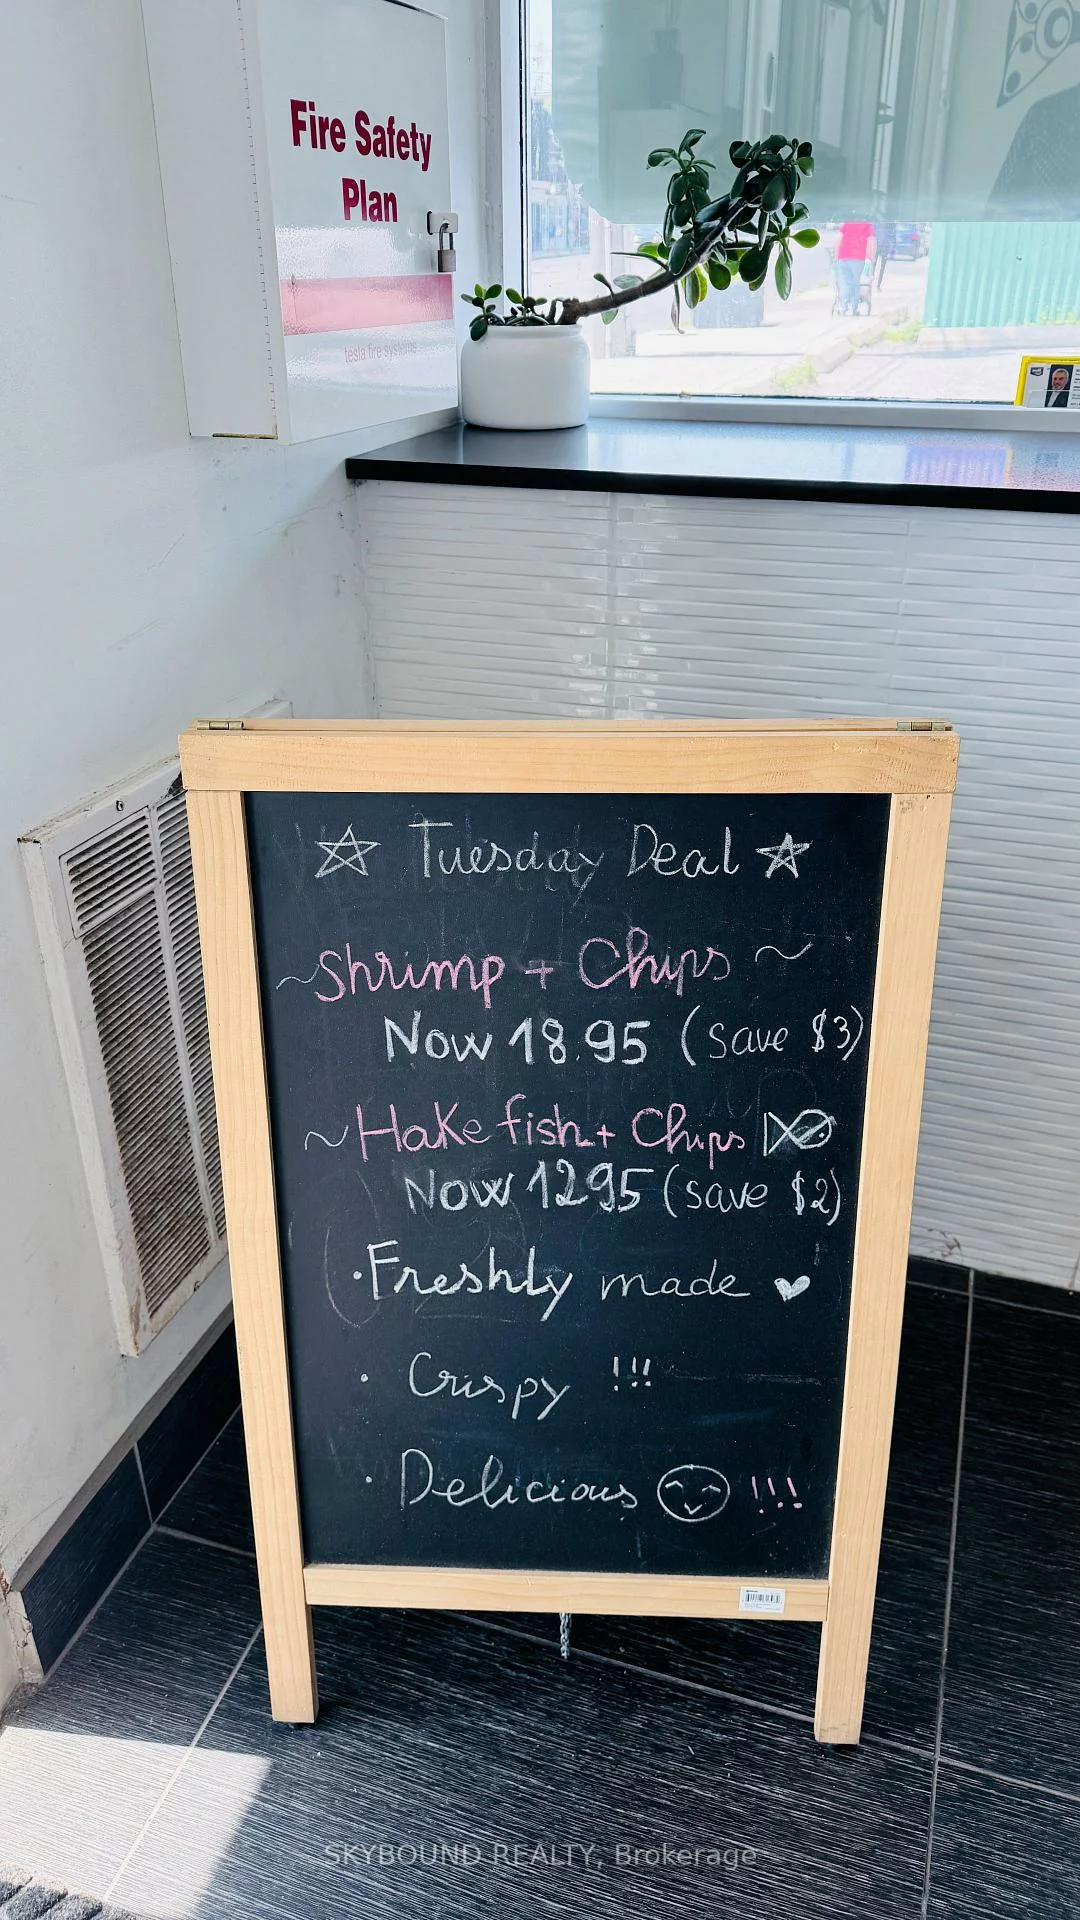 Fire Safety
Plan
tesla fire systems
☆ Tuesday Deal ☆
~ Shrimp + Chips ~
Now 18.95 (save $3)
~ Hake fish + Chips
Now 12.95 (save $2)
• Freshly made ♥
• Crispy !!!
• Delicious !!!
SKYBOUND REALTY, Brokerage